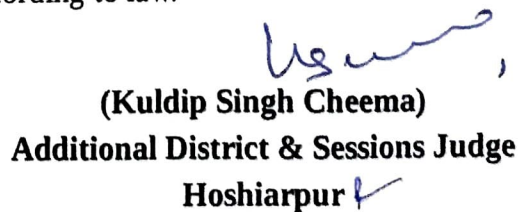 (Kuldip Singh Cheema)
Additional District & Sessions Judge
Hoshiarpur